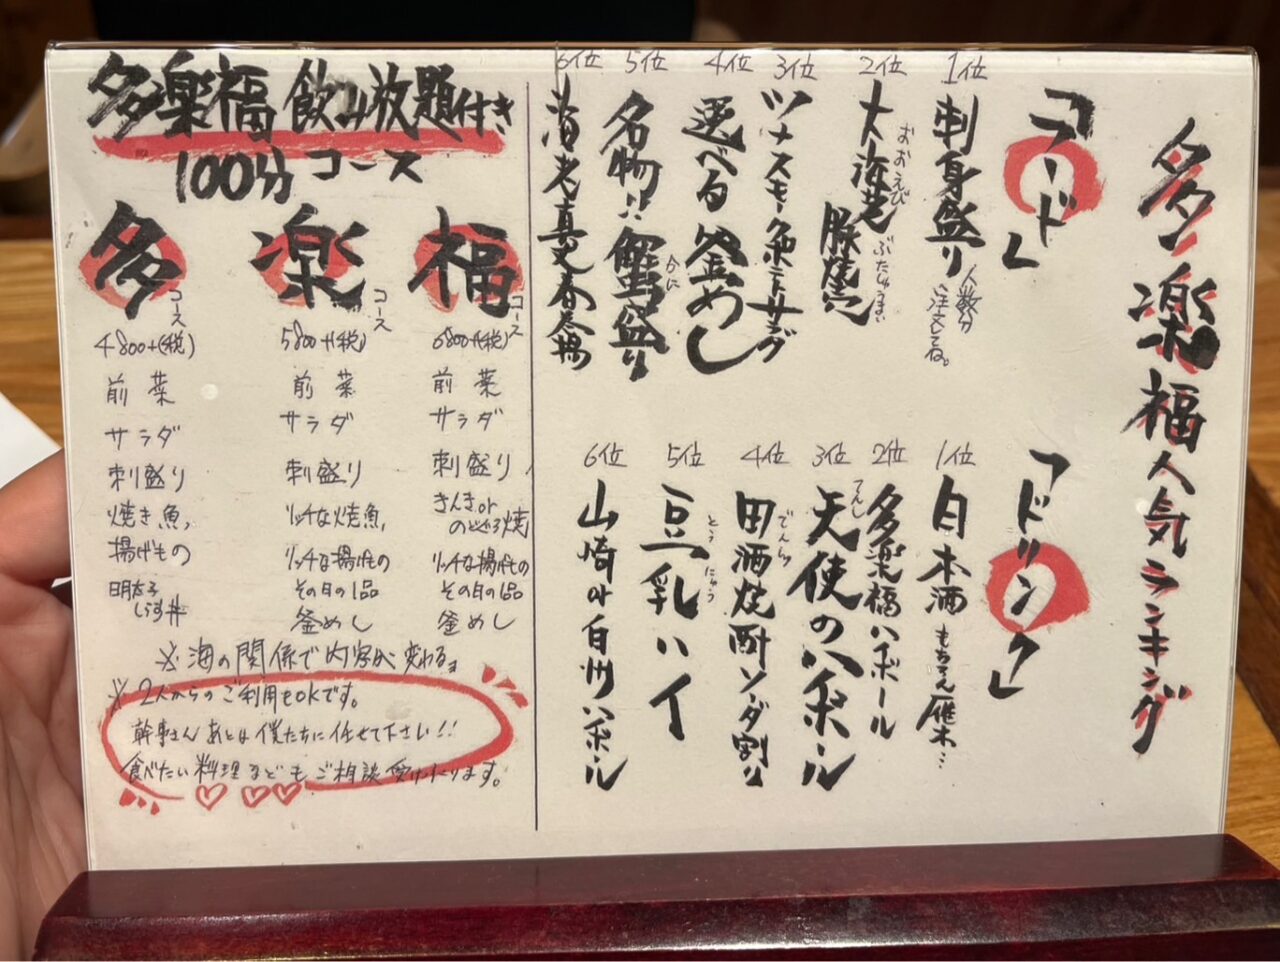 多楽福人気ランキング
「フード」
1位
刺身盛り 人数分注文してね。
2位
大海老豚焼売
おおえび
ぶたしゅまい
3位
ツナスモークポテトサラダ
4位
選べる釜めし
5位
名物!!蟹盛り
かに
6位
海老真丈春巻揚
「ドリンク」
1位
日本酒 もちろん雁木…
2位
多楽福ハイボール
3位
天使のハイボール
てんし
4位
田酒焼酎ソーダ割り
でんしゅ
5位
豆乳ハイ
とうにゅう
6位
山崎or白州ハイボール
多楽福飲み放題付き
100分コース
多コース
4800+(税)
前菜
サラダ
刺盛り
焼き魚
揚げもの
明太子
しらす丼
楽コース
5800+(税)
前菜
サラダ
刺盛り
リッチな焼魚
リッチな揚げもの
その日の1品
釜めし
福コース
6800+(税)
前菜
サラダ
刺盛り
きんきor
のどぐろ焼
リッチな揚げもの
その日の1品
釜めし
※海の関係で内容が変わるよ
※2人からのご利用もOKです。
幹事さんあとは僕たちに任せて下さい!!
食べたい料理などもご相談受けたまわります。